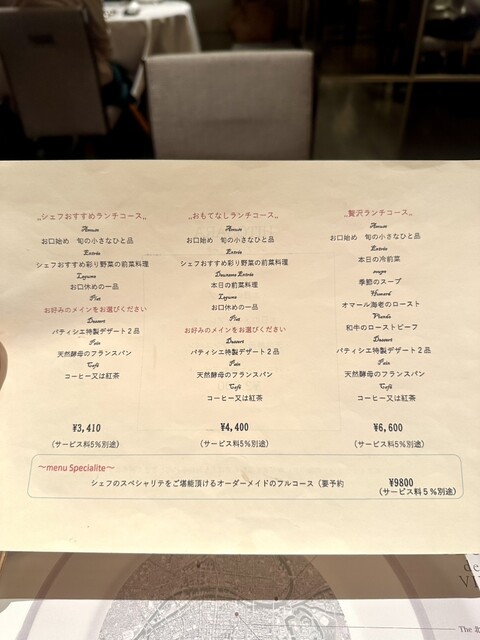 „シェフおすすめランチコース„
Amuse
お口始め 旬の小さなひと品
Entrée
シェフおすすめ彩り野菜の前菜料理
Legume
お口休めの一品
Plat
お好みのメインをお選びください
Dessert
パティシエ特製デザート２品
Pain
天然酵母のフランスパン
Café
コーヒー又は紅茶
¥3,410
(サービス料5%別途)
„おもてなしランチコース„
Amuse
お口始め 旬の小さなひと品
Entrée
シェフおすすめ彩り野菜の前菜料理
Deuxieme Entrée
本日の前菜料理
Legume
お口休めの一品
Plat
お好みのメインをお選びください
Dessert
パティシエ特製デザート２品
Pain
天然酵母のフランスパン
Café
コーヒー又は紅茶
¥4,400
(サービス料5%別途)
„贅沢ランチコース„
Amuse
お口始め 旬の小さなひと品
Entrée
本日の冷前菜
soupe
季節のスープ
Homard
オマール海老のロースト
Viande
和牛のローストビーフ
Dessert
パティシエ特製デザート２品
Pain
天然酵母のフランスパン
Café
コーヒー又は紅茶
¥6,600
(サービス料5%別途)
～menu Specialite～
シェフのスペシャリテをご堪能頂けるオーダーメイドのフルコース（要予約 ¥9800
(サービス料５％別途)
de
VI
The